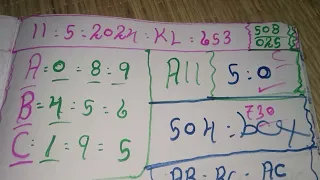 11:5:2024:KL:653
508
025
A=0=8:9
All
5:0
B=4=5=6
730
504=bcx
C=1=9=5
AB=BC=AC